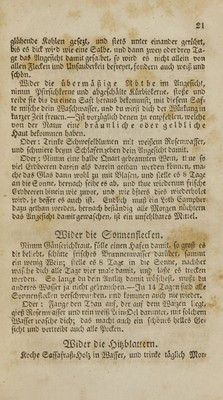 21
glühende Kohlen gesetzt, und stets unter einander gerührt,
bis es dick wird wie eine Salbe, und dann zwey oder drey Ta-
ge das Angesicht damit gesalbet, so wird es nicht allein von
allen Flecken und Unsauberkeit befreyet, sondern auch weiß und
schön.
Wider die übermäßige Röthe im Angesicht,
nimm Pfirsichkerne und abgeschälte Kürbiskerne, stoße und
reibe sie bis du einen Saft heraus bekommst; mit diesem Saft
te mische dein Waschwasser, und du wirst dich der Wirkung in
kurzer Zeit freuen.—Ist vorzüglich denen zu empfehlen, welche
von der Natur eine bräunliche oder gelbliche
Haut bekommen haben.
Oder: Trinke Schwefelblumen mit weißem Rosenwasser,
und schmiere beym Schlafengehen dein Angesicht damit.
Oder: Nimm eine halbe Quart gebrannten Wein, thue so
viel Erdbeeren darein als darein gethan werden können, ma-
che das Glas dann wohl zu mit Blasen, und stelle es 8 Tage
an die Sonne, hernach seihe es ab, und thue wiederum frische
Erdbeeren hinein wie zuvor, und wie öfters dies wiederholet
wird, je besser es auch ist. Endlich muß ein Loth Campher
dazu gethan werden, hernach beständig alle Morgen nüchtern
das Angesicht damit gewaschen, ist ein unschätzbares Mittel.
Wider die Sonnenflecken.
Nimm Gänserichkraut, fülle einen Hafen damit, so groß es
dir beliebt, schütte frisches Brunnenwasser darüber, sammt
ein wenig Wein; stelle es 8 Tage in die Sonne, nachher
wasche dich alle Tage vier male damit, und lasse es trocken
werden. So lange du dein Antlitz damit wäschest, mußt du
anderes Wasser ja nicht gebrauchen.—In 14 Tagen sind alle
Sonnenflecken verschwunden, und kommen auch nie wieder.
Oder: Fange den Thau auf, der auf dem Waizen liegt,
gieß Rosenwasser und rein weiß Lein-Oel darunter, mit solchem
Wasser wasche dich; das macht auch ein schönes helles Ge-
sicht und vertreibt auch alle Pocken.
Wider die Hitzblattern.
Koche Sassafraß-Holz in Wasser, und trinke täglich Mor-